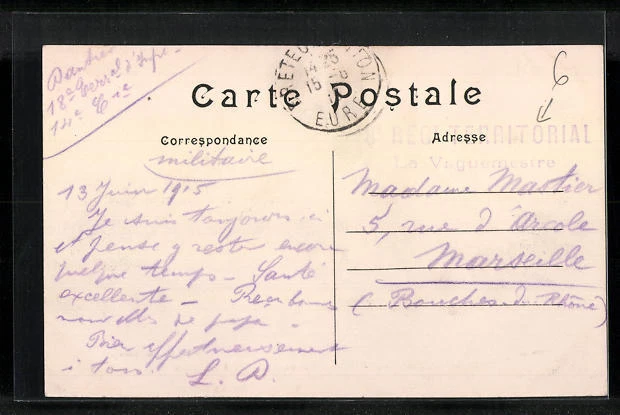 18e Terral d'Inf.
14e Cie
BRETEUIL-S-ITON
14 25
15 -6
EURE
6
Carte Postale
Correspondance
Adresse
militaire
REG. TERRITORIAL
Le Vaguemestre
13 Juin 1915
Je suis toujours ici
et pense y rester encore
quelque temps - Santé
excellente - Reçu bonnes
nouvelles de papa.
Bien affectueusement
à tous. L. D.
Madame Mastier
5, rue d'Arcole
Marseille
(Bouches du Rhône)